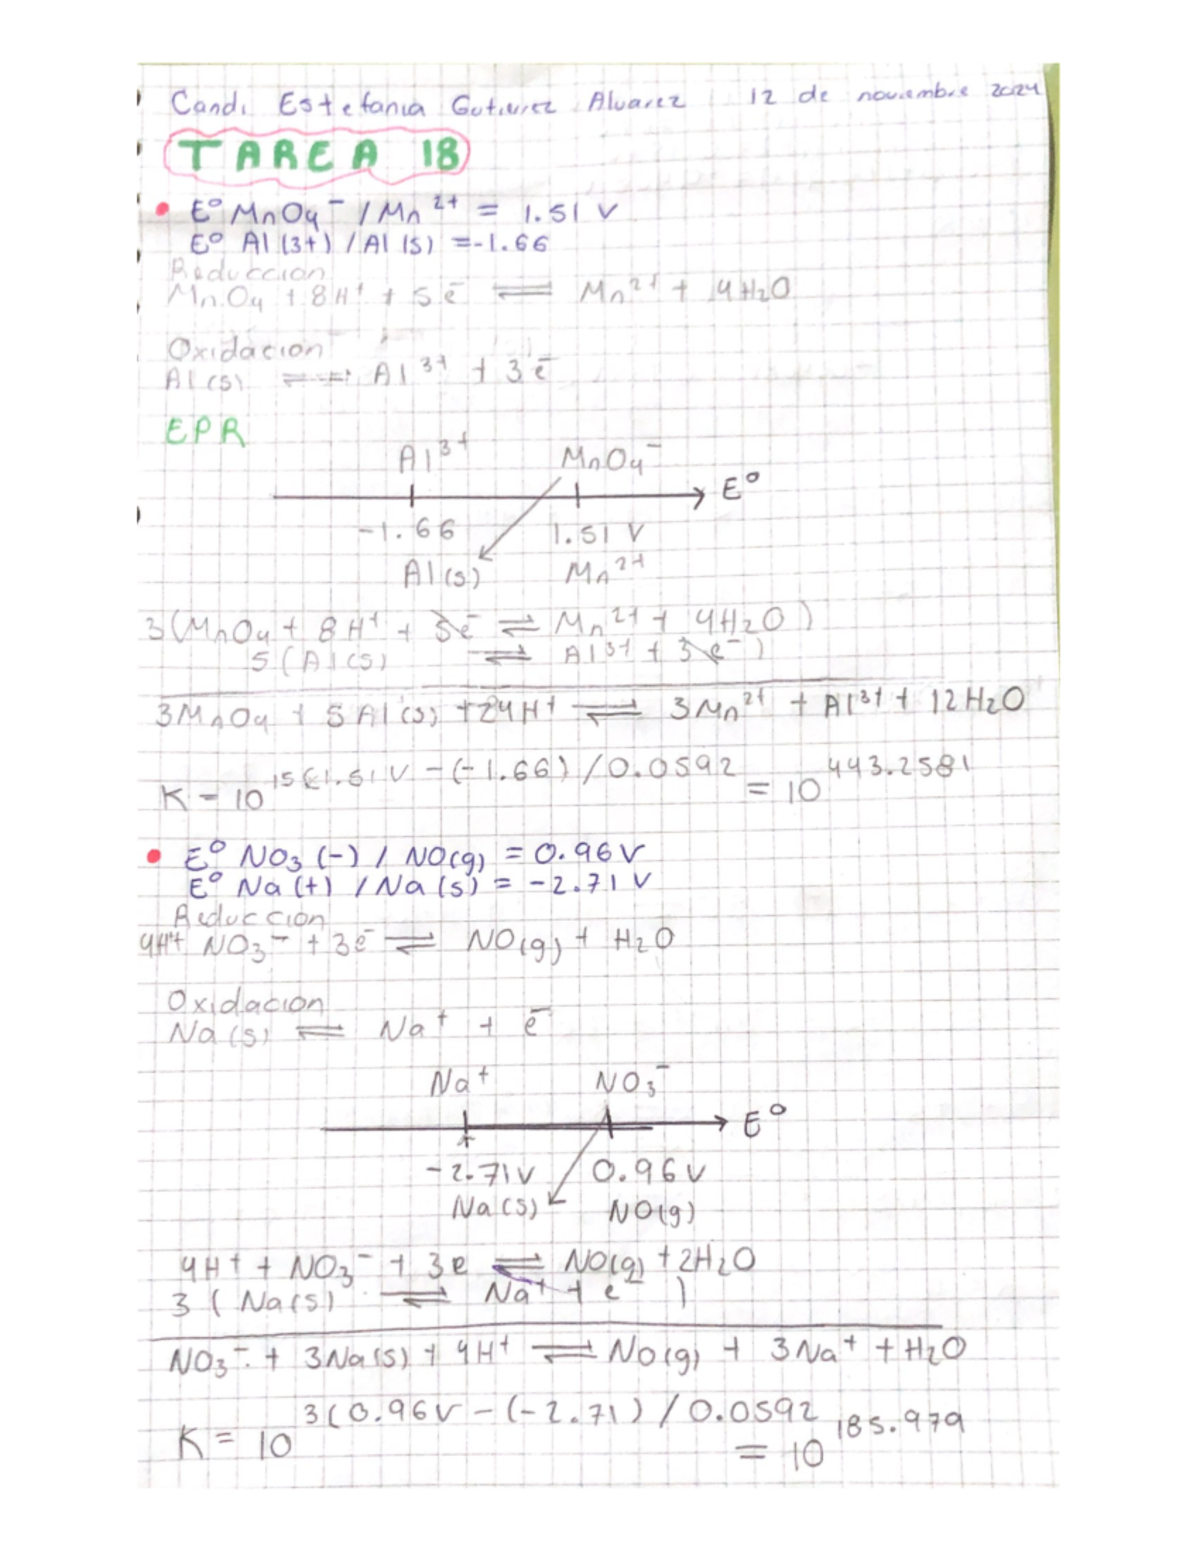 Candi Estefania Gutierrez Alvarez 12 de noviembre 2024
TAREA 18
• E° MnO4⁻ / Mn²⁺ = 1.51 V
E° Al (3+) / Al (s) = -1.66
Reduccion
MnO4 + 8H⁺ + 5e⁻ ⇌ Mn²⁺ + 4H2O
Oxidacion
Al(s) ⇌ Al³⁺ + 3e⁻
EPR
Al³⁺ MnO4⁻
E°
-1.66 1.51 V
Al(s) Mn²⁺
3(MnO4 + 8H⁺ + 5e⁻ ⇌ Mn²⁺ + 4H2O)
5(Al(s) ⇌ Al³⁺ + 3e⁻)
3MnO4 + 5Al(s) + 24H⁺ ⇌ 3Mn²⁺ + Al³⁺ + 12H2O
K = 10^15(1.51V - (-1.66)/0.0592 = 10^443.2581
• E° NO3 (-) / NO(g) = 0.96V
E° Na (+) / Na (s) = -2.71V
Reduccion
4H⁺+ NO3⁻ + 3e⁻ ⇌ NO(g) + H2O
Oxidacion
Na(s) ⇌ Na⁺ + e⁻
Na⁺ NO3⁻
E°
-2.71V 0.96V
Na(s) NO(g)
4H⁺ + NO3⁻ + 3e ⇌ NO(g) + 2H2O
3(Na(s) ⇌ Na⁺ + e⁻)
NO3⁻ + 3Na(s) + 4H⁺ ⇌ NO(g) + 3Na⁺ + H2O
K = 10^3(0.96V - (-2.71)/0.0592 = 10^185.979